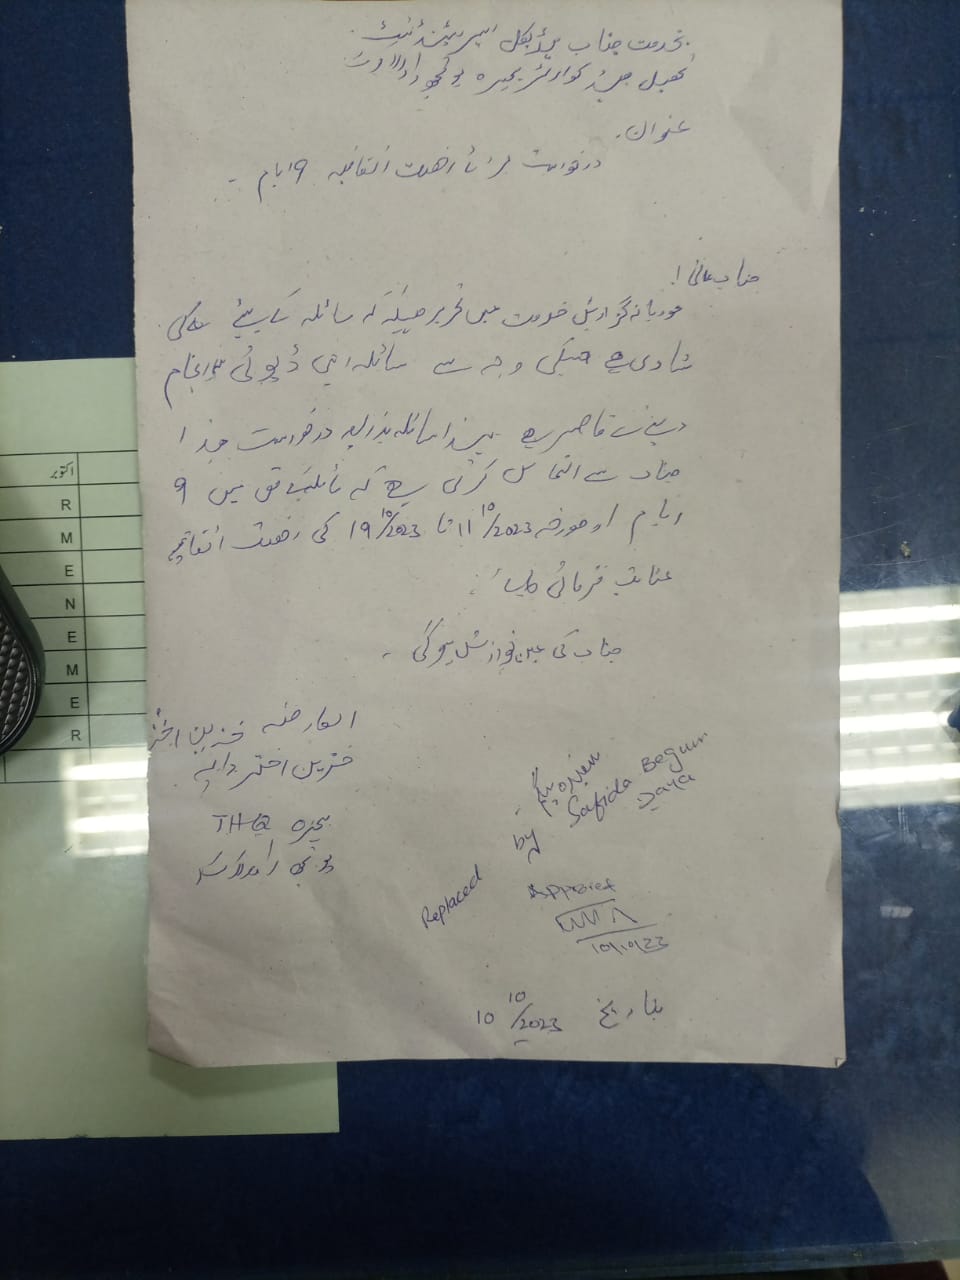 بخدمت جناب میڈیکل سپرینٹنڈنٹ
تحصیل ہیڈ کوارٹر ہجیرہ پونچھ راولاکوٹ
عنوان۔
درخواست برائے رخصت اتفاقیہ 9 ایام ۔
جناب عالی!
مودبانہ گزارش خدمت میں تحریر ہیکہ کہ سائلہ کے بیٹے کی
شادی ہے جسکی وجہ سے سائلہ اپنی ڈیوٹی سرانجام
دینے سے قاصر ہے لہذا سائلہ بذریعہ درخواست ہذا
جناب سے التماس کرتی ہے کہ سائلہ کے حق میں 9
ایام از مورخہ 11 10/2023 تا 19 10/2023 کی رخصت اتفاقیہ
عنایت فرمائی جائے۔
جناب کی عین نوازش ہوگی ۔
العارضہ
اختر دایہ
THQ ہجیرہ
پونچھ راولاکوٹ
سفیدہ بیگم
Replaced by Safida Begum
Daya
Approved
10/10/23
بتاریخ 10 10/2023
اکتوبر
R
M
E
N
E
M
E
R